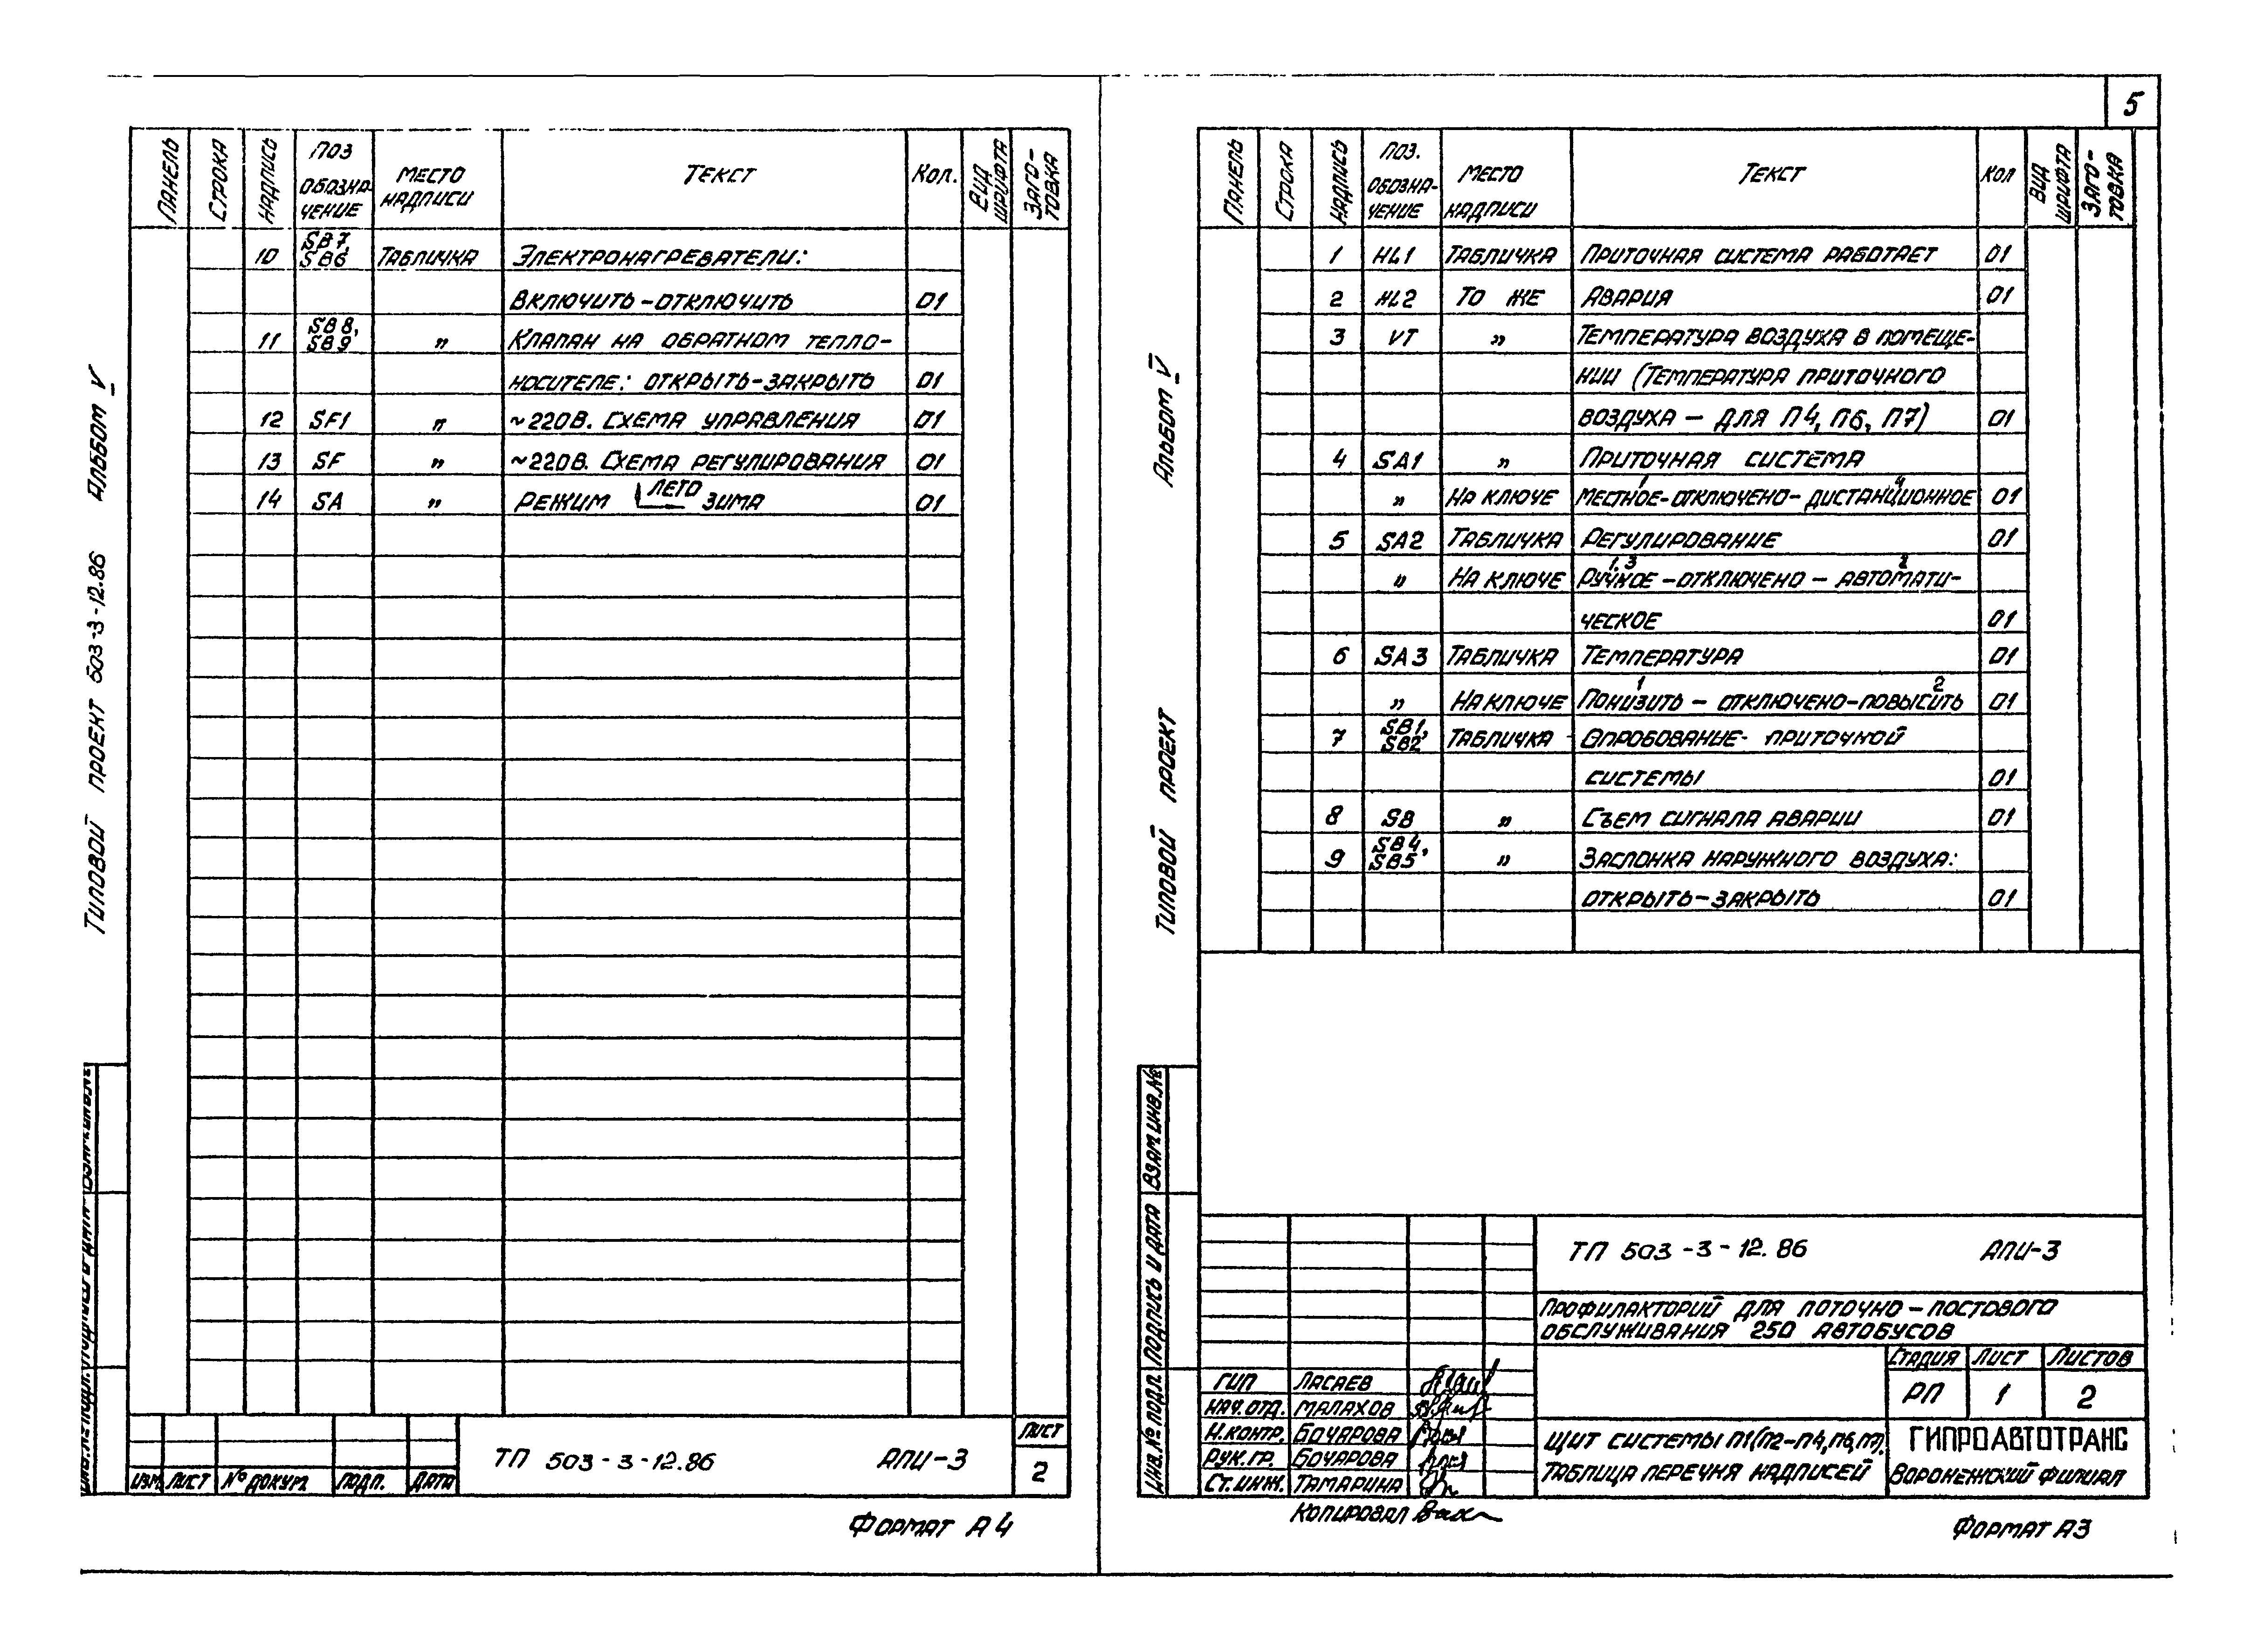 5
Типовой проект 503-3-12.86 Альбом V
Панель Строка Надпись Поз обозна-чение Место надписи Текст Кол. Вид шрифта Заго-товка
10 SB7, SB6 Табличка Электронагреватели:
включить-отключить 01
11 SB8, SB9 " Клапан на обратном тепло-
носителе: открыть-закрыть 01
12 SF1 " ~220В. Схема управления 01
13 SF " ~220В. Схема регулирования 01
14 SA " Режим лето зима 01
Изм. Лист № докум. Подп. Дата
ТП 503-3-12.86 АПИ-3
Лист
2
Формат А4
Типовой проект Альбом V
Панель Строка Надпись Поз. обозна-чение Место надписи Текст Кол Вид шрифта Заго-товка
1 HL1 Табличка Приточная система работает 01
2 HL2 То же Авария 01
3 VT " Температура воздуха в помеще-
нии (температура приточного
воздуха - для П4, П6, П7) 01
4 SA1 " Приточная система
" На ключе Местное-отключено-дистанционное 01
5 SA2 Табличка Регулирование 01
1,3 2
" На ключе Ручное-отключено-автомати-
ческое 01
6 SA3 Табличка Температура 01
1 2
" На ключе Понизить - отключено-повысить 01
7 SB1, SB2 Табличка Опробование приточной
системы 01
8 SB " Съем сигнала аварии 01
9 SB4, SB5 " Заслонка наружного воздуха:
открыть-закрыть 01
Инв.№ подл. Подпись и дата Взам.инв.№
ТП 503-3-12.86 АПИ-3
Профилакторий для поточно-постового
обслуживания 250 автобусов
Стадия Лист Листов
РП 1 2
ГИП Ласаев
Нач.отд. Малахов
Н.контр. Бочарова
Рук.гр. Бочарова
Ст.инж. Тамарина
Щит системы П1(П2-П4,П6,П7).
Таблица перечня надписей
ГИПРОАВТОТРАНС
Воронежский филиал
Копировал
Формат А3